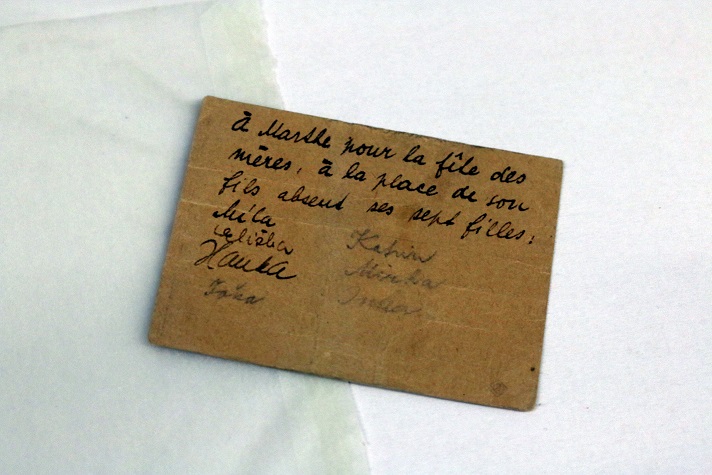 à Marthe pour la fête des
mères, à la place de son
fils absent ses sept filles:
Míla
Hanka
Katrin
Mirka